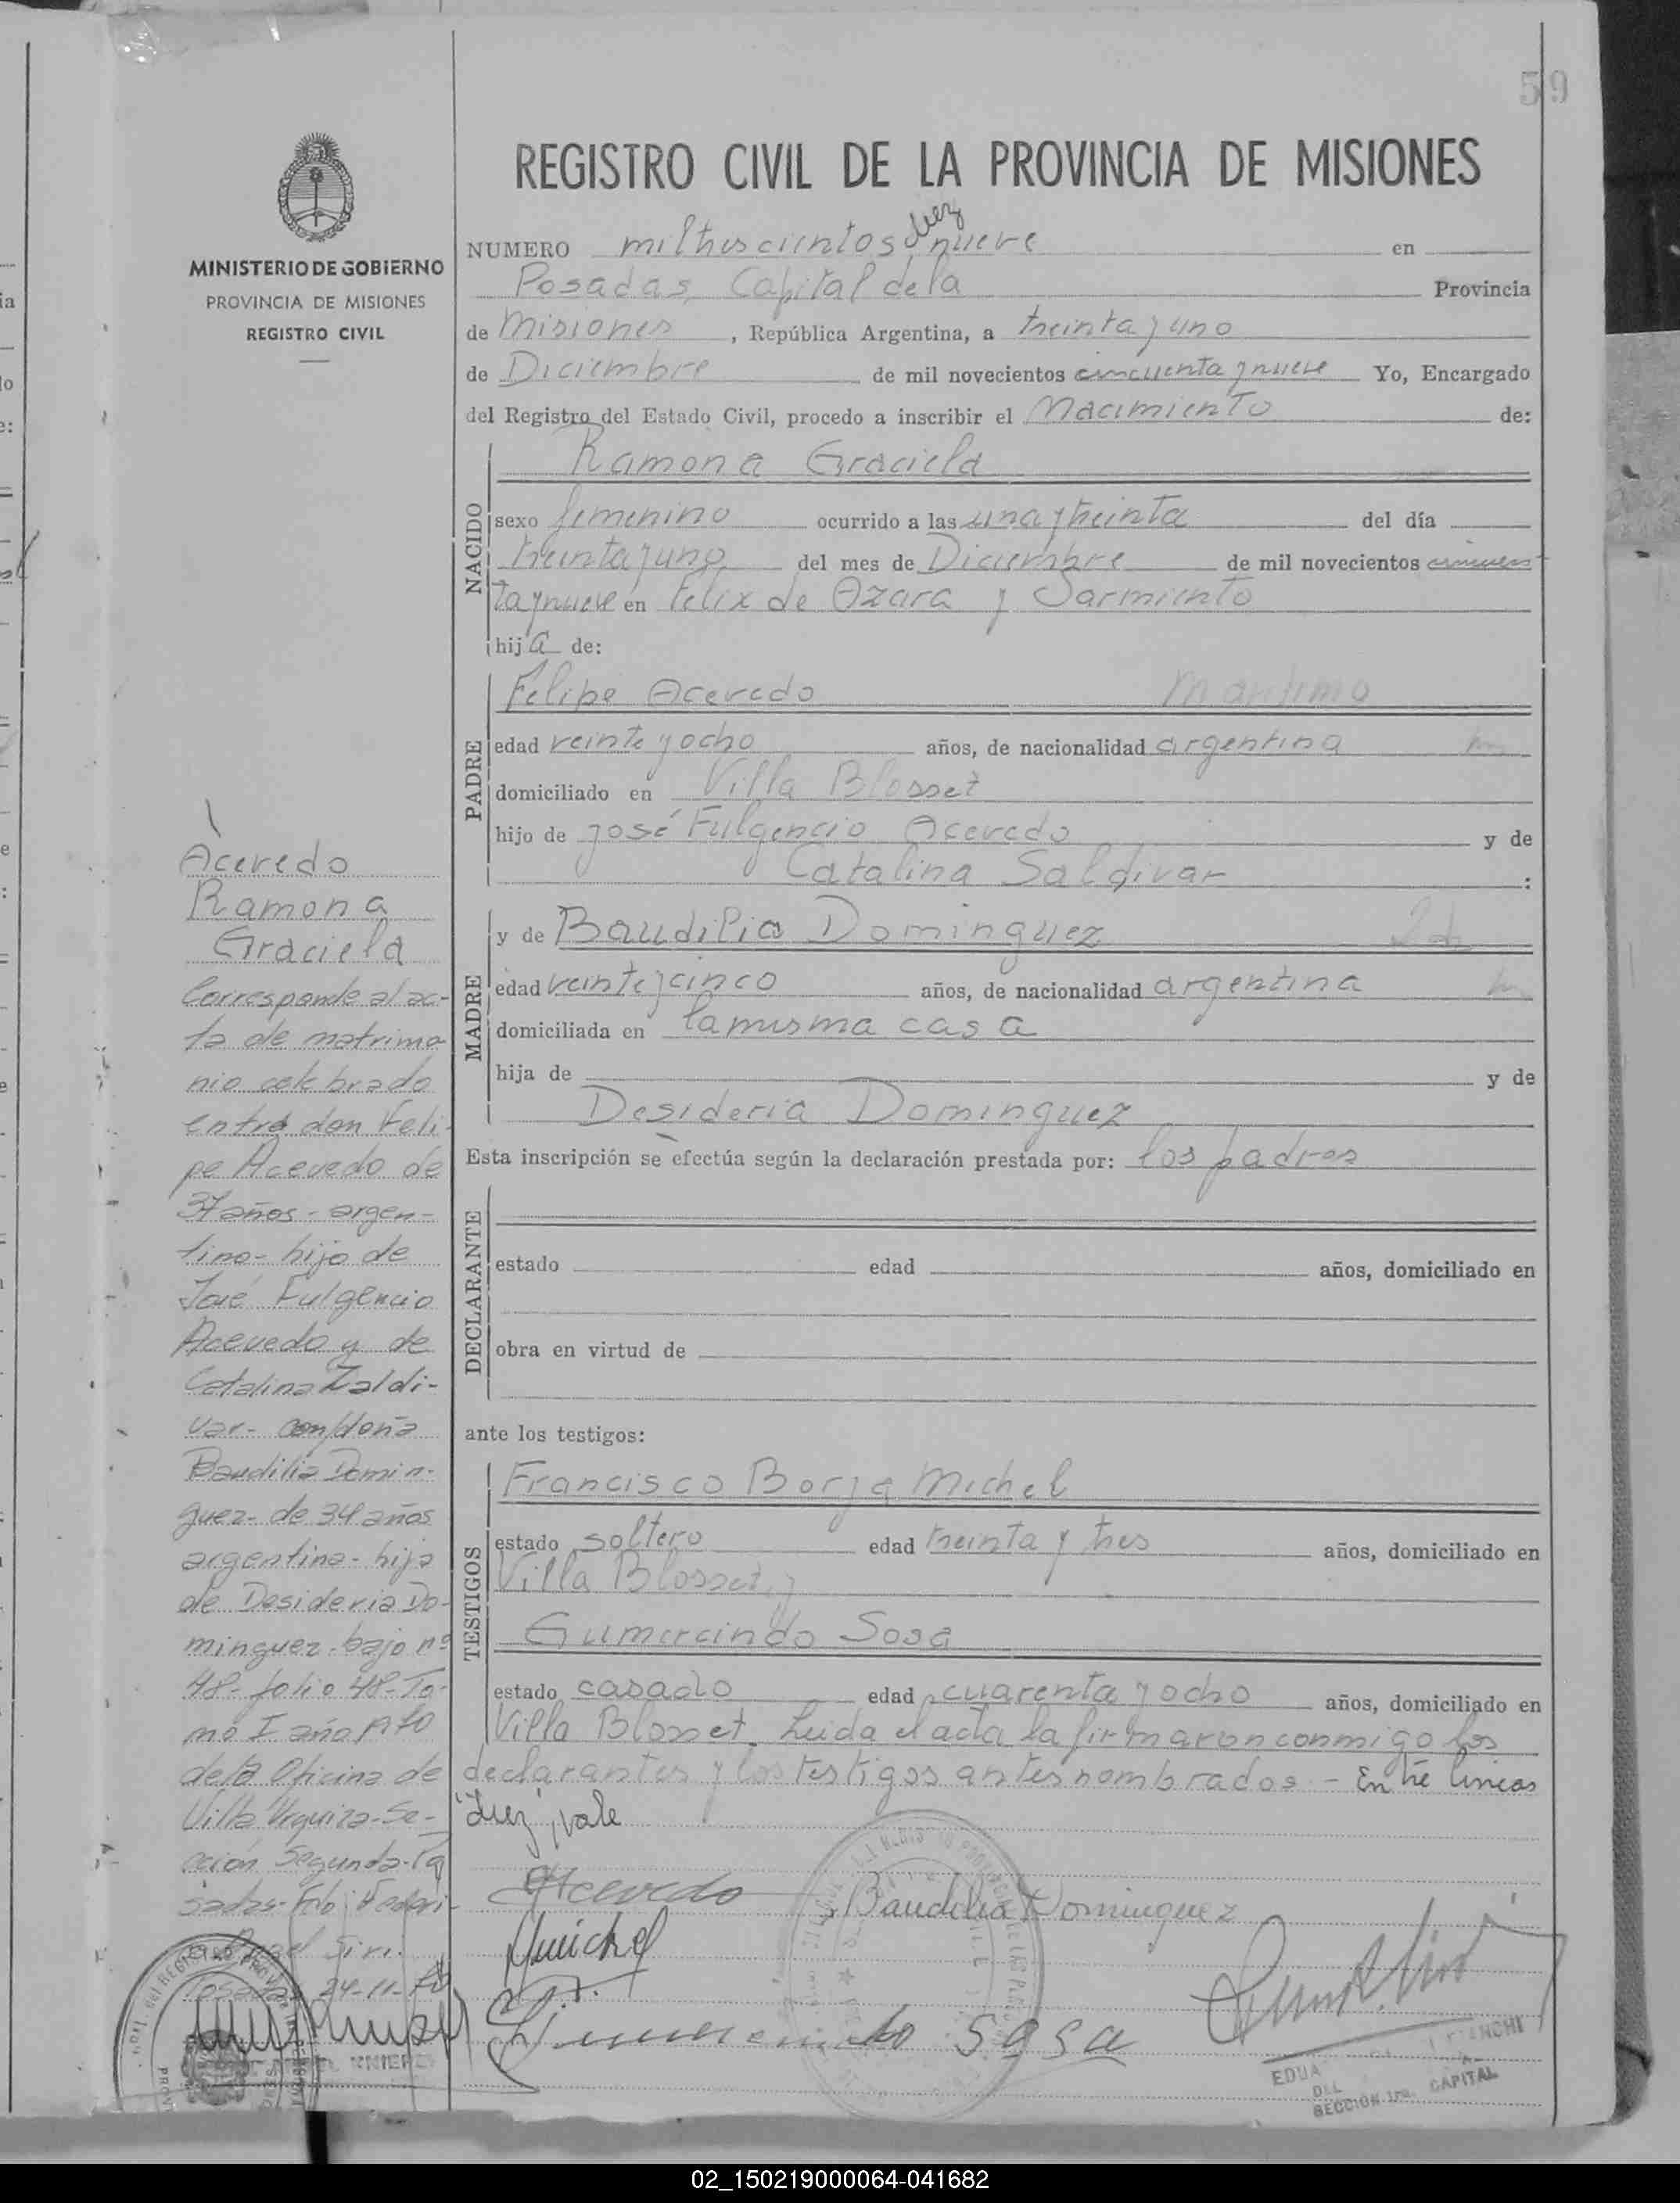 59
REGISTRO CIVIL DE LA PROVINCIA DE MISIONES
MINISTERIO DE GOBIERNO
PROVINCIA DE MISIONES
REGISTRO CIVIL
diez
NUMERO mil trescientos nueve en
Posadas, Capital de la Provincia
de Misiones, República Argentina, a treinta y uno
de Diciembre de mil novecientos cincuenta y nueve Yo, Encargado
del Registro del Estado Civil, procedo a inscribir el Nacimiento de:
NACIDO
Ramona Graciela
sexo femenino ocurrido a las una y treinta del día
treinta y uno del mes de Diciembre de mil novecientos cincuen
ta y nueve en Felix de Azara y Sarmiento
hija de:
PADRE
Felipe Acevedo
edad veinte y ocho años, de nacionalidad argentina
domiciliado en Villa Blosset
hijo de José Fulgencio Acevedo y de
Catalina Saldivar :
MADRE
y de Baudilia Dominguez
edad veinte y cinco años, de nacionalidad argentina
domiciliada en la misma casa
hija de y de
Desideria Dominguez
Esta inscripción se efectúa según la declaración prestada por: los padres
DECLARANTE
estado edad años, domiciliado en
obra en virtud de
ante los testigos:
TESTIGOS
Francisco Borja Michel
estado soltero edad treinta y tres años, domiciliado en
Villa Blosset y
Gumercindo Sosa
estado casado edad cuarenta y ocho años, domiciliado en
Villa Blosset. Leida el acta la firmaron conmigo los
declarantes y los testigos antes nombrados - Entre lineas
"diez", vale
Acevedo
Baudilia Dominguez
Michel
Gumercindo Sosa
SECCION 1ra. CAPITAL
Acevedo
Ramona
Graciela
Corresponde al ac-
ta de matrimo-
nio celebrado
entre don Feli-
pe Acevedo de
37 años - argen-
tino - hijo de
José Fulgencio
Acevedo y de
Catalina Zaldi-
var - con doña
Baudilia Domin-
guez - de 34 años
argentina - hija
de Desideria Do-
minguez - bajo nº
48 - folio 48 - To-
mo I año
de la Oficina de
Villa Urquiza - Se-
cción Segunda - Po
sadas -
24-11-
02_150219000064-041682